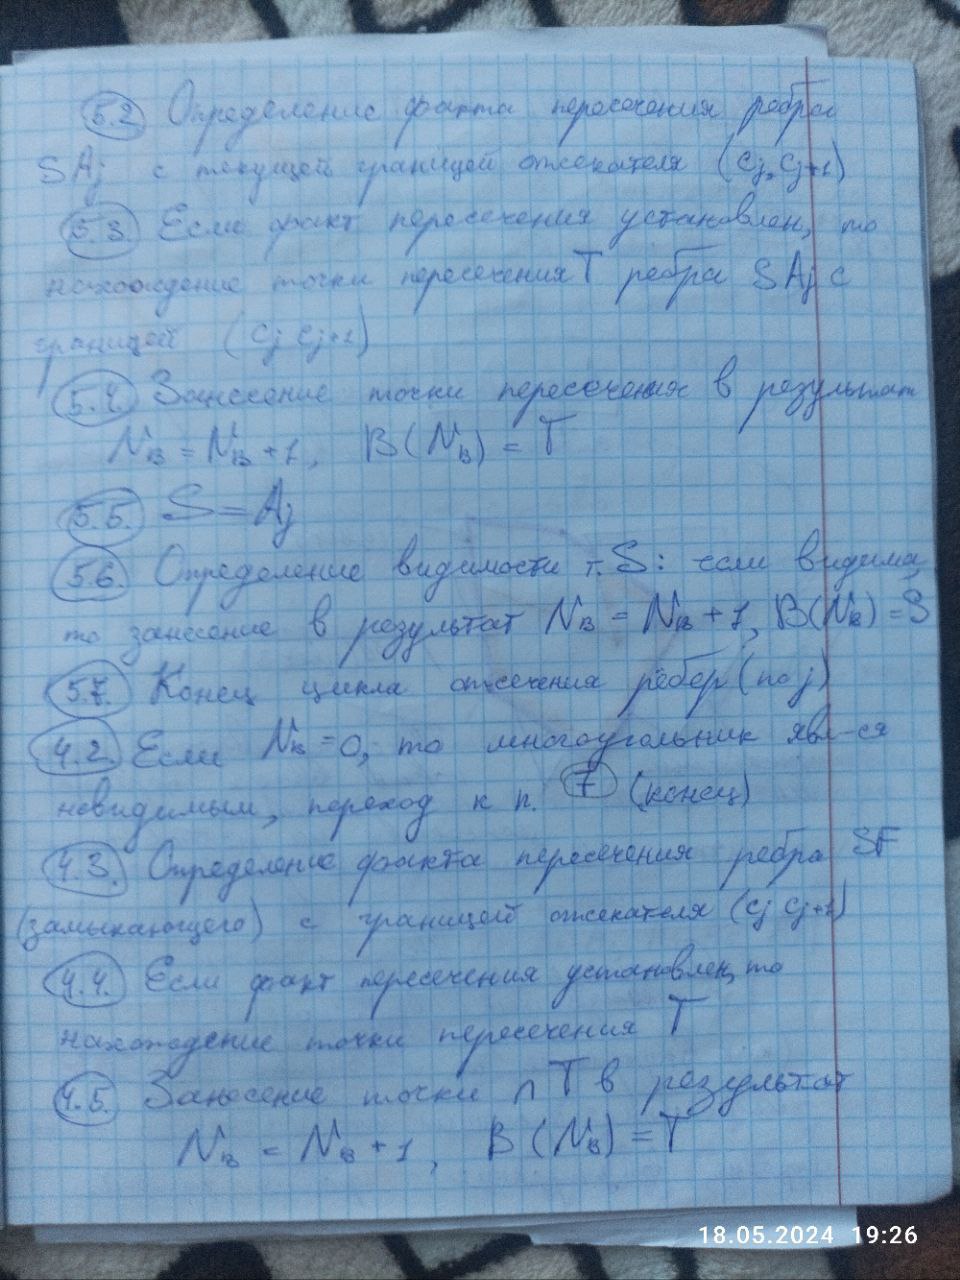 5.2 Определение факта пересечения ребра
SAj с текущей границей отсекателя (Cj, Cj+1)
5.3. Если факт пересечения установлен, то
нахождение точки пересечения T ребра SAj с
границей (Cj Cj+1)
5.4. Занесение точки пересечения в результат
Nв = Nв + 1, B(Nв) = T
5.5. S = Aj
5.6. Определение видимости т. S: если видима,
то занесение в результат Nв = Nв + 1, B(Nв) = S
5.7. Конец цикла отсечения рёбер (по j)
4.2. Если Nв = 0, то многоугольник явл-ся
невидимым, переход к п. 7 (конец)
4.3. Определение факта пересечения ребра SF
(замыкающего) с границей отсекателя (Cj Cj+1)
4.4. Если факт пересечения установлен, то
нахождение точки пересечения T
4.5. Занесение точки ∩ T в результат
Nв = Nв + 1, B(Nв) = T
18.05.2024 19:26